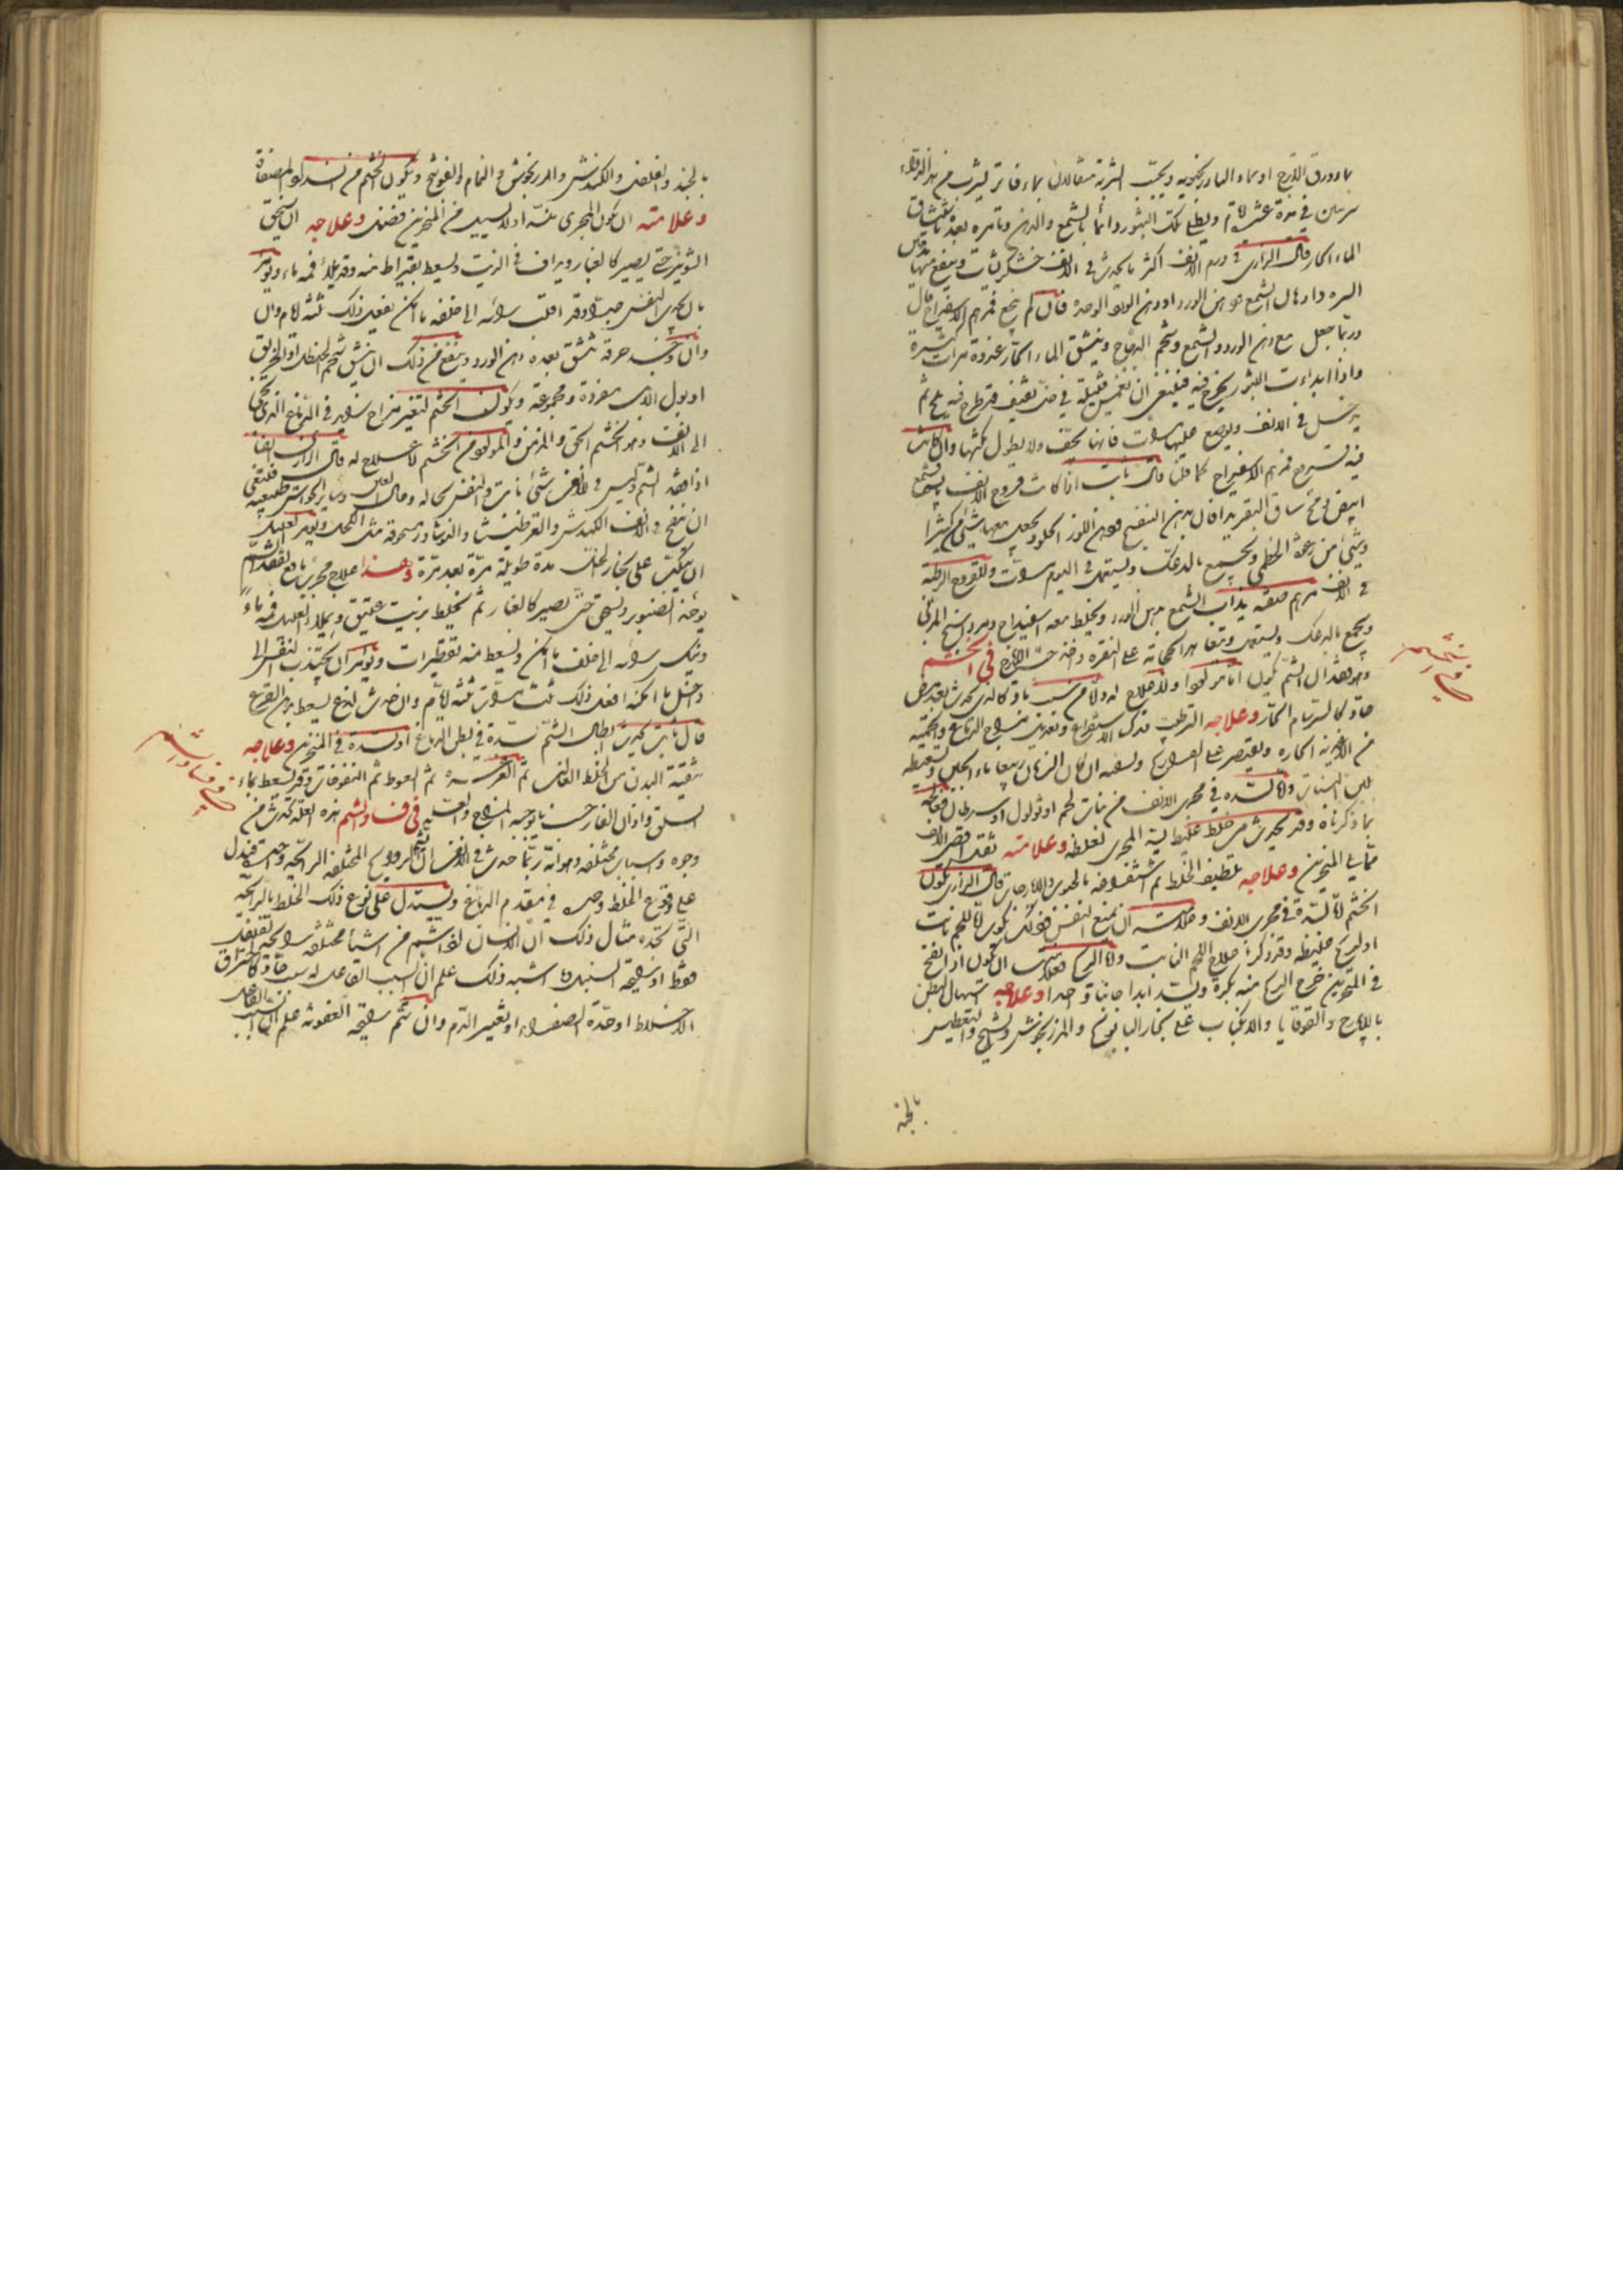 بماء ورق الاترج او بماء البادرنجبويه ويحبب الشربة مثقالان بماء فاتر يشرب من هذا الدواء
مرتان في مدة عشرة ايام ويطلى تلك البثور دائما بالشمع والدهن وتأمره بعده باستنشاق
الماء الحار قال الرازي في ورم الانف اكثر ما يحدث في الانف خشكريشات وينفع منها
السره دارهال الشمع مع دهن الورد او دهن الورد وحده قال فان لم ينجع فمرهم الاسفيداج قال
وربما جعل مع دهن الورد والشمع وشحم الدجاج وينشق الماء الحار غدوة مرات كثيرة
واذا ابتدأت البثر يخرج فيه فينبغي ان تغمس فتيلة في خل ثقيف قد طرح فيه ملح ثم
يدخل في الانف ويوضع عليها مرات فانها تجف ولا يطول مكثها وان كانت
فيه قروح فمرهم الاسفيداج كما قلنا قال ثابت اذا كانت قروح الانف يابسة شمع
ابيض ومخ ساق البقر يذابان بدهن البنفسج ودهن اللوز الحلو ويجعل معهما شيء من كثيرا
وشيء من رغوة الخطمي ويجمع بالدعك ويستعمل في اليوم مرات وللقروح الرطبة
في الانف مرهم صفته يذاب الشمع بدهن الورد ويخلط معه اسفيداج ومرداسنج المربى
ويجمع بالدعك ويستعمل وينفعها الحجامة على النقرة واخذ حب الايارج في الخشم
وهو فقدان الشم يكون اما مولودا ولا علاج له ولا من سبب باد كالذي يحدث بعد مرض
حاد كالسرسام الحار وعلاجه الترطيب وترك الاستفراغ وتعديل مزاج الدماغ والحمية
من الاغذية الحارة ويقتصر على الفراريج ويسقيه ان كان الزمان ربيعا ماء الجبن ويسعطه
بلبن النساء ولا لسدة في مجرى الانف من نبات لحم او ثؤلول او سرطان فعالجه
بما ذكرناه وقد يحدث من خلط غليظ يسد المجرى لغلظه وعلامته ثقل اقصى الانف
مما يلي المنخرين وعلاجه تلطيف الخلط ثم استفراغه بالحبوب والايارجات قال الرازي يكون
الخشم اما لسدة في مجرى الانف وعلامته ان يمنع النفس فذلك يكون اما للحم نابت
او لريح غليظة وقد ذكرنا علاج اللحم النابت واما الريح فعلامته ان يكون اذا انفتح
في المنخرين خرج الريح منه بكرة ويسد ابدا جانبا واحدا وعلاجه اسهال البطن
بالايارج والقوقايا والانكباب على بخار البابونج والمرزنجوش والشيح والتعطيس
بالجند
في الخشم
بالجند والفلفل والكندش والمرزنجوش والنمام والفوتنج ويكون الخشم من سدة المصفاة
وعلامته ان يكون المجرى بينه ولا يسيل من المنخرين فضل وعلاجه ان يسحق
الشونيز حتى يصير كالغبار ويداف في الزيت ويسعط بقيراط منه وقد يملأ فمه ماء ويؤمر
بان يجذب النفس جيدا وقد اقلب رأسه الى خلفه ما امكن يفعل ذلك ثلثة ايام وان
وان وجد حرقة تنشق بعده دهن الورد وينفع من ذلك ان ينشق شحم الحنظل او الخربق
او بول الابل مفردة ومجموعة ويكون الخشم لتغير مزاج شديد في الدماغ الذي يجي
الى الانف وهو الخشم الحق والمزمن والمولود من الخشم لا علاج له قال الرازي ايضا
اذا فقد الشم وليس في الانف شيء نابت والنفس بحاله وحال العين وسائر الحواس طبيعية فينبغي
ان ينفخ في الانف الكندش والقرطيثا والنوشادر مسحوقة مثل الكحل ويؤمر العليل
ان ينكب على بخار الخل مدة طويلة مرة بعد مرة وهذا علاج مجرب نافع لفقد الشم
يؤخذ الصنوبر ويسحق حتى يصير كالغبار ثم يخلط بزيت عتيق ويملأ العليل فمه ماء
وينكس رأسه الى خلف ما امكن ويسعط منه تقطيرات ويؤمر ان يجتذب النفس الى
داخل ما امكنه افعل ذلك ثلث مرات ثلثة ايام وان حدث لذع يسعط بدهن القرع
قال ثابت يحدث بطلان الشم لسدة في بطن الدماغ او لسدة في المنخرين وعلاجه
تنقية البدن من الخلط الغالب ثم الغرغرة ثم السعوط ثم النفوخات وقد يسعط بماء
السلق واذان الفار حسب ما توجبه المزاج والعلة في فساد الشم هذه العلة تحدث من
وجوه واسباب مختلفة وهو انه ربما حدث في الانف ان يشم الروايح المختلفة الرائحة واحدة فيدل
على وقوع الخلط وحده في مقدم الدماغ ويستدل على نوع ذلك الخلط بالرائحة
التي تجده مثال ذلك ان الانسان لو اشتم من اشياء مختلفة رائحة القرنفل
فقط او رائحة السنبل وما اشبه ذلك علم ان السبب الفاعل له سبب حاد كاحتراق
الاخلاط او حدة الصفراء او تغيير الدم وان شم رائحة العفونة علم ان السبب الفاعل
في فساد الشم